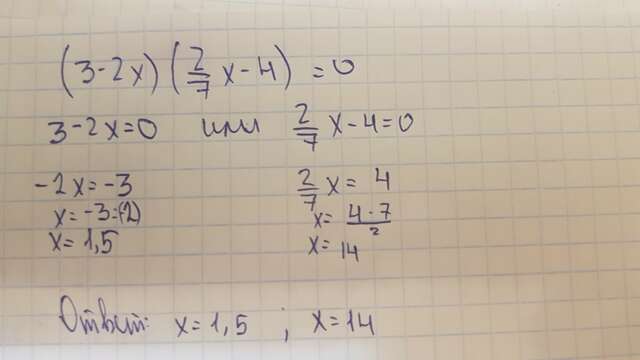 (3-2x)(2/7 x-4)=0
3-2x=0 или 2/7 x-4=0
-2x=-3 2/7 x=4
x=-3:(2) x=4·7/2
x=1,5 x=14
Ответ: x=1,5 ; x=14